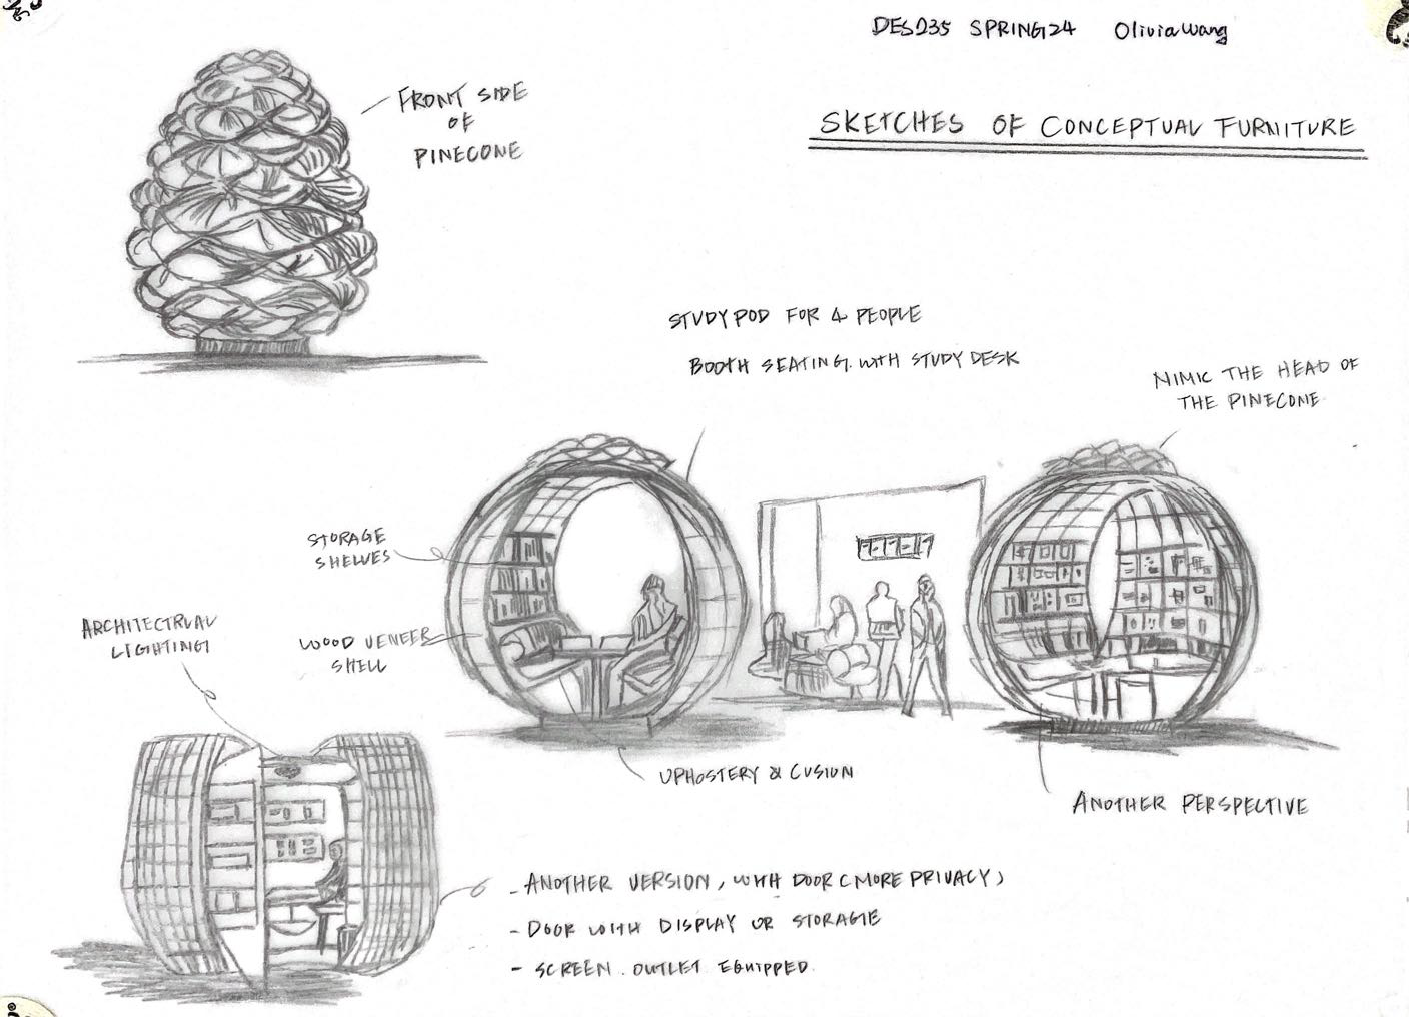 DES235 SPRING24 Olivia Wang
SKETCHES OF CONCEPTUAL FURNITURE
FRONT SIDE
OF
PINECONE
STUDY POD FOR 4 PEOPLE
BOOTH SEATING. WITH STUDY DESK
MIMIC THE HEAD OF
THE PINECONE
STORAGE
SHELVES
WOOD VENEER
SHELL
ARCHITECTRUAL
LIGHTING
UPHOSTERY & CUSION
ANOTHER PERSPECTIVE
- ANOTHER VERSION, WITH DOOR (MORE PRIVACY)
- DOOR WITH DISPLAY OR STORAGE
- SCREEN. OUTLET EQUIPPED.